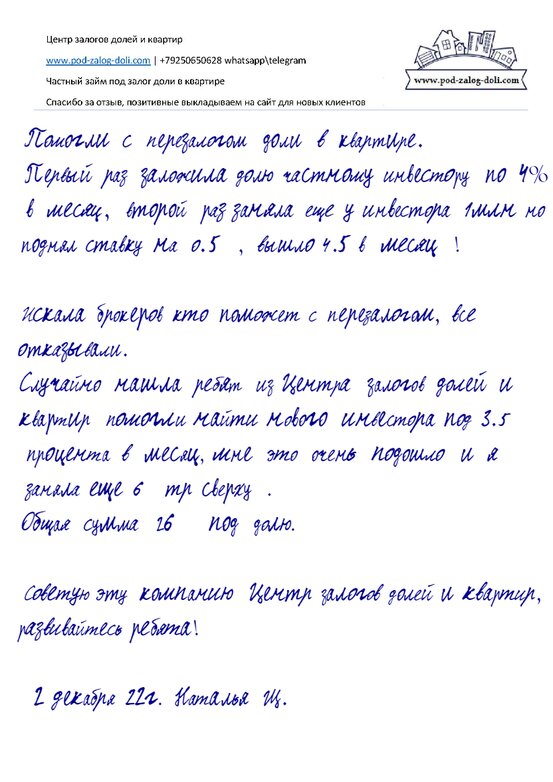 Центр залогов долей и квартир
www.pod-zalog-doli.com | +79250650628 whatsapp\telegram
Частный займ под залог доли в квартире
Спасибо за отзыв, позитивные выкладываем на сайт для новых клиентов
www.pod-zalog-doli.com
Помогли с перезалогом доли в квартире.
Первый раз заложила долю частному инвестору по 4%
в месяц, второй раз заняла еще у инвестора 1млн но
поднял ставку на 0.5 , вышло 4.5 в месяц !
искала брокеров кто поможет с перезалогом, все
отказывали.
Случайно нашла ребят из Центра залогов долей и
квартир помогли найти нового инвестора под 3.5
процента в месяц, мне это очень подошло и я
заняла еще 6 тр сверху .
Общая сумма 26 под долю.
советую эту компанию Центр залогов долей и квартир,
развивайтесь ребята!
2 декабря 22г. Наталья Щ.